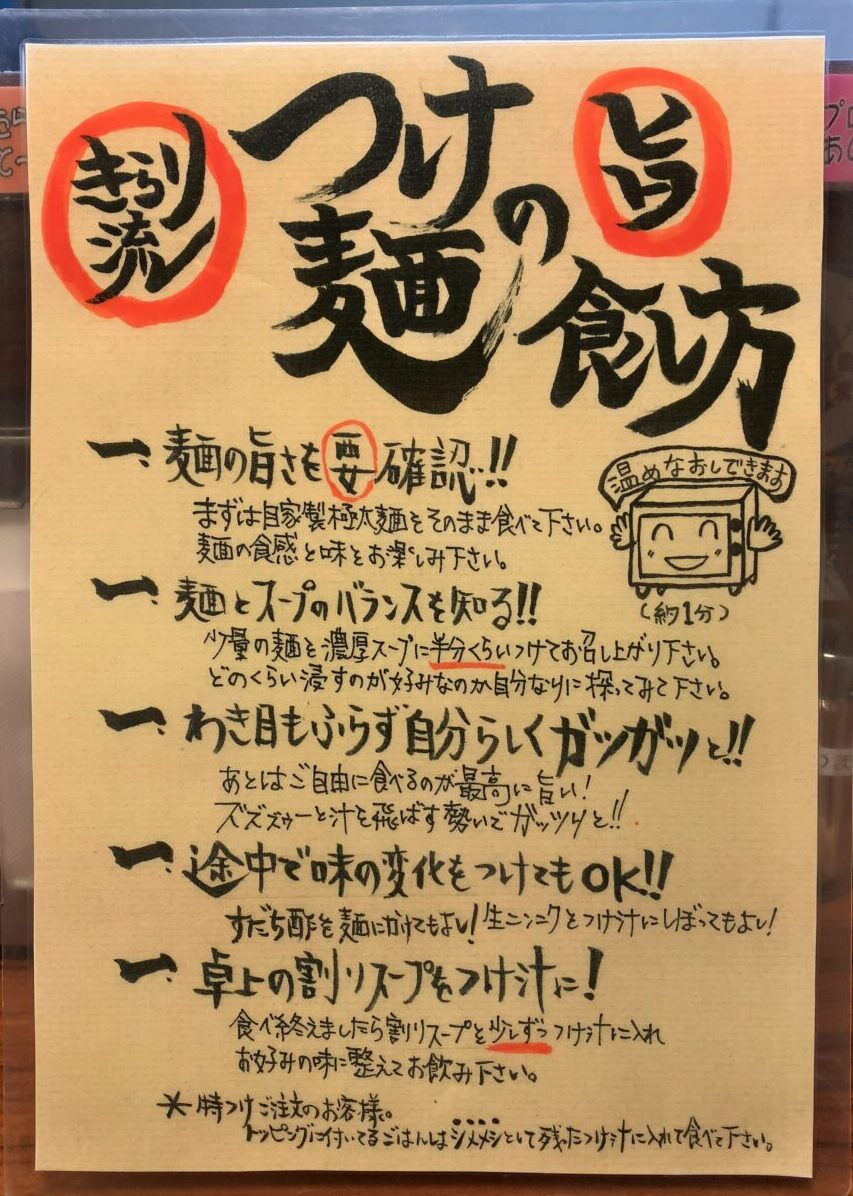 きらり流
つけ麺の旨食し方
一、麺の旨さを要確認!!
まずは自家製極太麺をそのまま食べて下さい。
麺の食感と味をお楽しみ下さい。
温めなおしできます
(約1分)
一、麺とスープのバランスを知る!!
少量の麺を濃厚スープに半分くらいつけてお召し上がり下さい。
どのくらい浸すのが好みなのか自分なりに探ってみて下さい。
一、わき目もふらず自分らしくガツガツと!!
あとはご自由に食べるのが最高に旨い!
ズズズゥーと汁を飛ばす勢いでガッツリと!!
一、途中で味の変化をつけてもOK!!
すだち酢を麺にかけてもよし!生ニンニクをつけ汁にしぼってもよし!
一、卓上の割りスープをつけ汁に!
食べ終えましたら割りスープを少しずつつけ汁に入れ
お好みの味に整えてお飲み下さい。
*特つけご注文のお客様。
トッピングに付いてるごはんはシメメシとして残ったつけ汁に入れて食べて下さい。